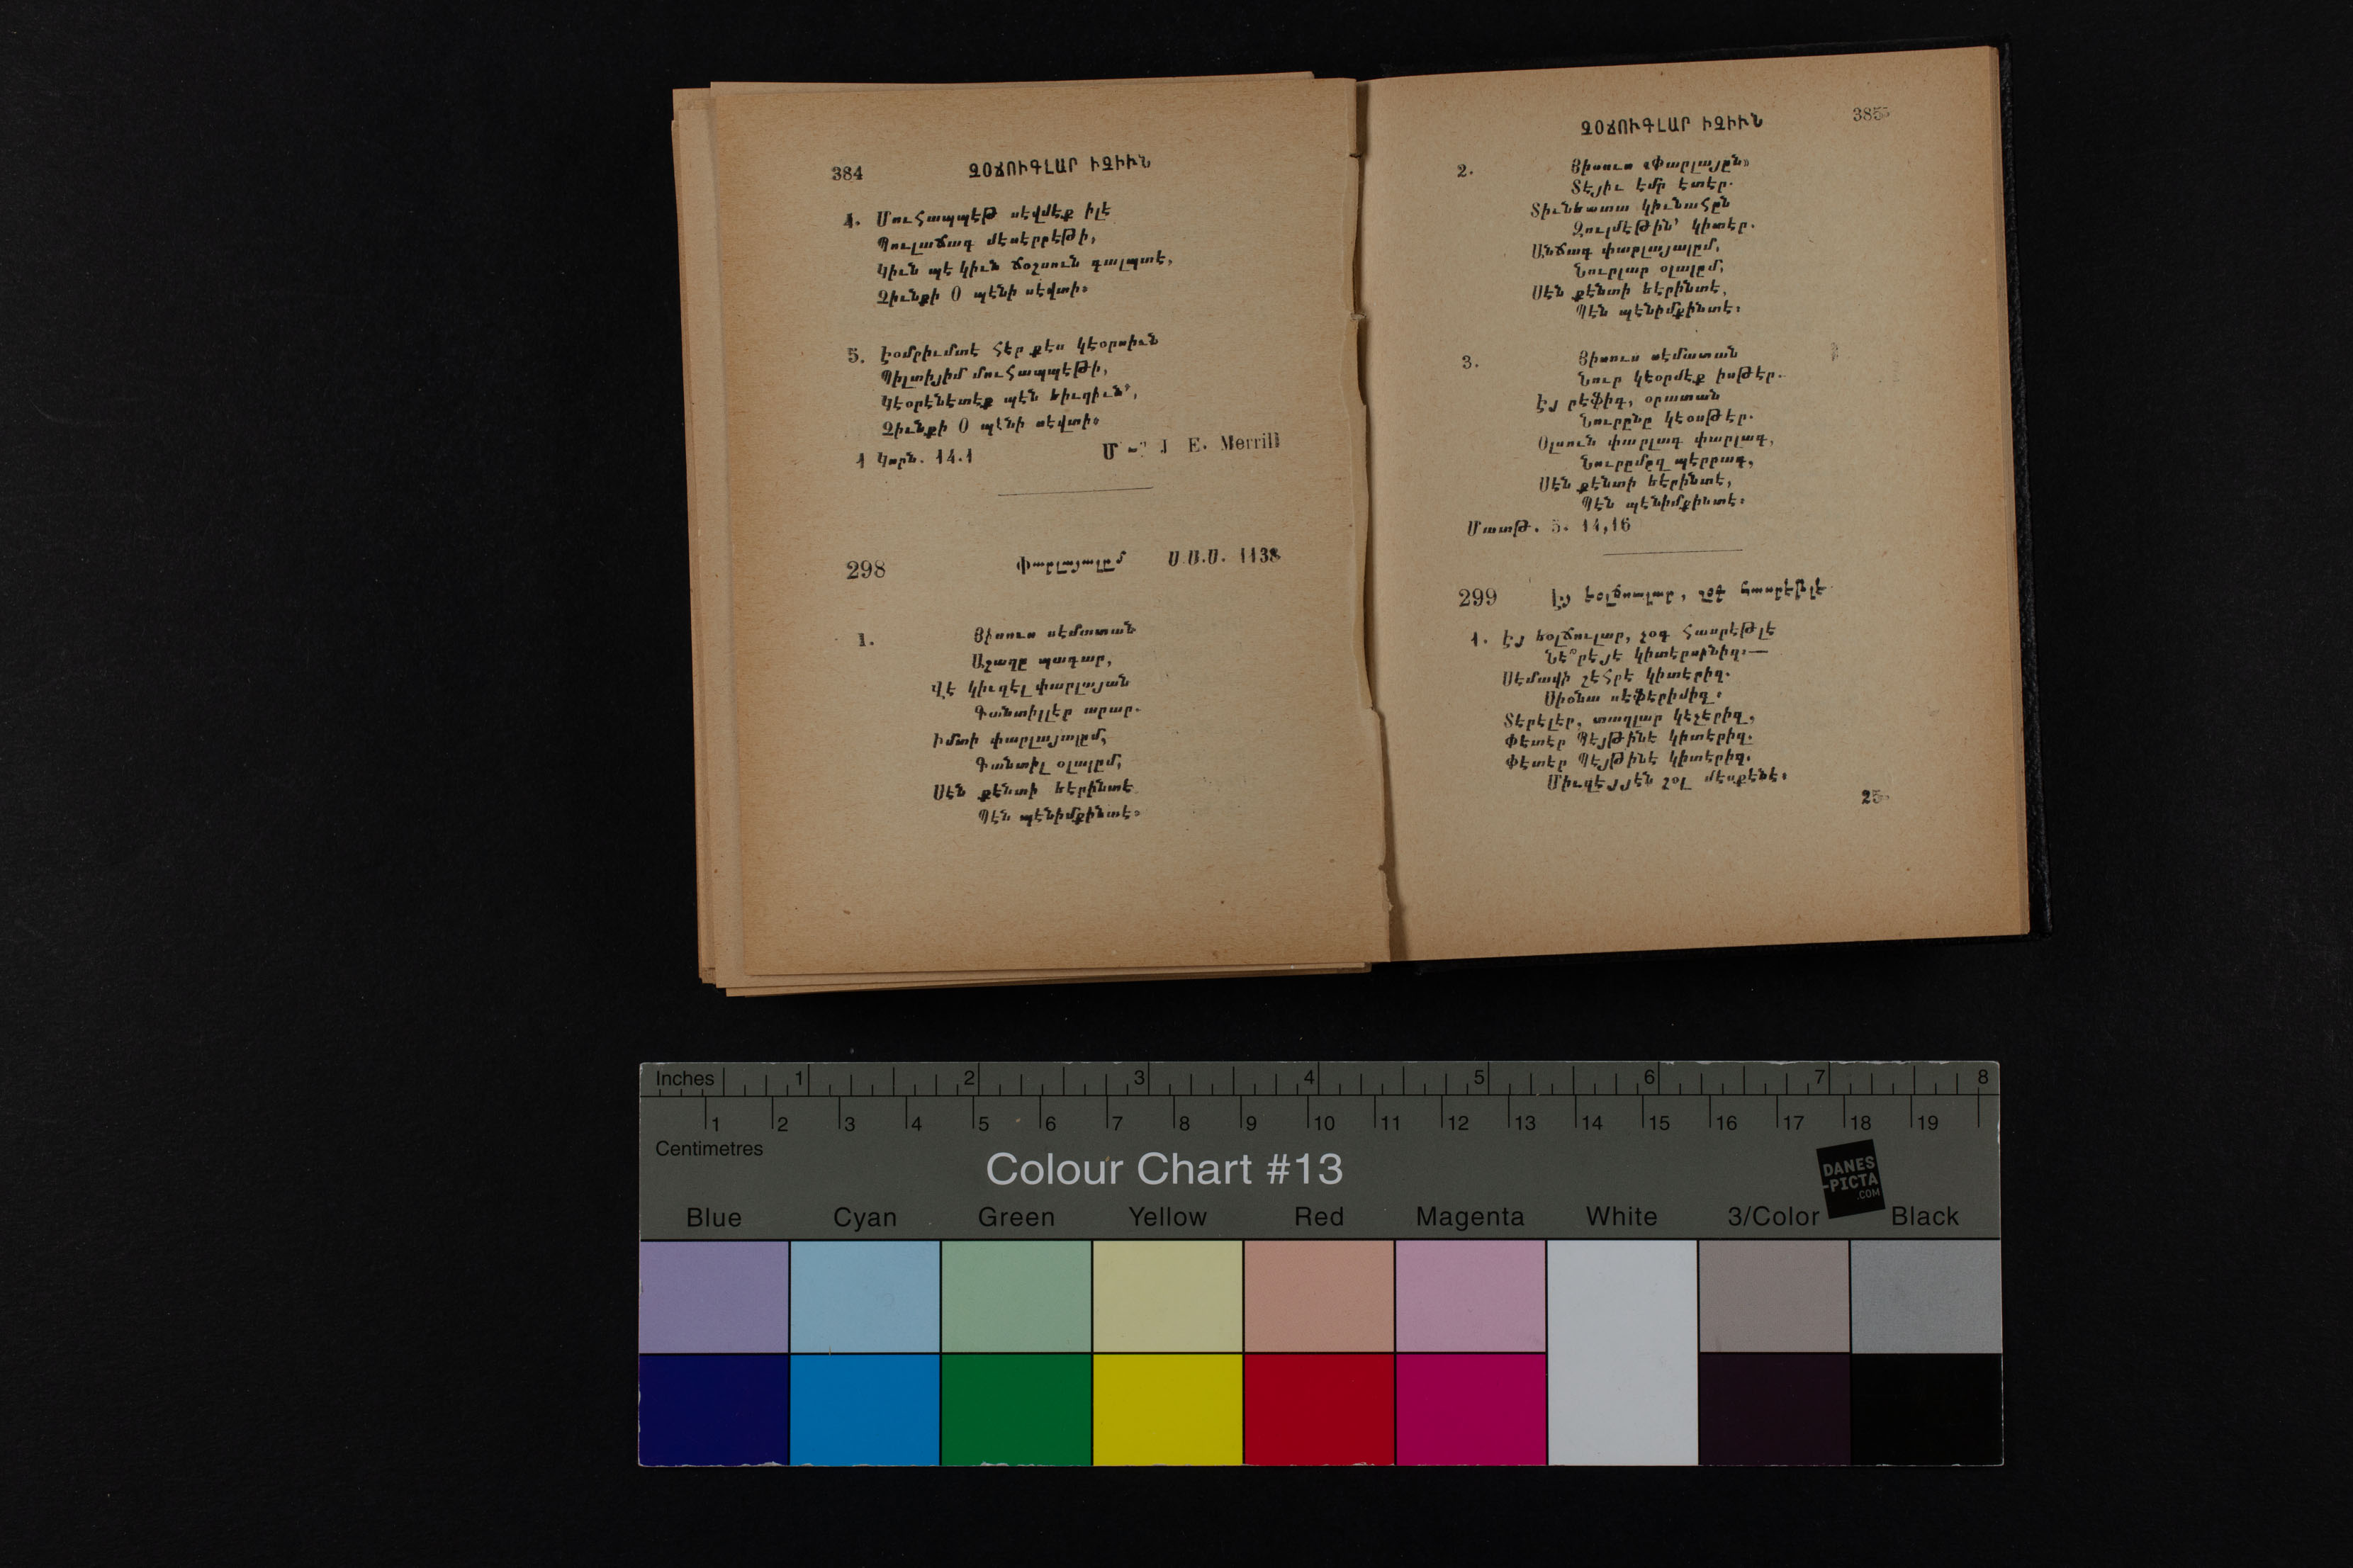 384
ՉՕՃՈՒԳԼԱՐ ԻՉԻՒՆ
4. Մուհապպէթ սէվմէք իլէ
Պուլաճագ մէսէրրէթի,
Կիւն պէ կիւն ճօշսուն գալպտէ,
Չիւնքի Օ պէնի սէվտի։
5. Էօմրիւմտէ հէր քէս կէօրսիւն
Պիլտիյիմ մուհապպէթի,
Կէօրէնէտէք պէն եիւզիւն՝,
Չիւնքի Օ պէնի սէվտի։
1 Կորն. 14.1
J E. Merrill
298
Փարլայալըմ
Ս.Ս.Ս. 1138
1. Յիսուս սէմատան
Աշաղը պագար,
Վէ կիւզէլ փարլայան
Գանտիլլէր արար.
Իմտի փարլայալըմ,
Գանտիլ օլալըմ,
Սէն քէնտի եէրինտէ
Պէն պէնիմքինտէ։
ՉՕՃՈՒԳԼԱՐ ԻՉԻՒՆ
385
2. Յիսուս «Փարլայըն»
Տէյիւ էմր էտէր.
Տիւնեատա կիւնահըն
Զուլմէթին՝ կիտէր.
Անճագ փարլայալըմ,
Նուրլար օլալըմ,
Սէն քէնտի եէրինտէ,
Պէն պէնիմքինտէ։
3. Յիսուս սէմատան
Նուր կէօրմէք իսթէր.
Էյ րէֆիգ, օրատան
Նուրընը կէօսթէր.
Օլսուն փարլագ փարլագ,
Նուրըմըզ պէրրագ,
Սէն քէնտի եէրինտէ,
Պէն պէնիմքինտէ։
Մատթ. 5. 14,16
299
Էյ եօլճուլար, չօգ հասրէթլէ
1. Էյ եօլճուլար, չօգ հասրէթլէ
Նե՞րէյէ կիտէրսինիզ.—
Սէմավի շէհրէ կիտէրիզ.
Սիօնա սէֆէրիմիզ։
Տէրէլէր, տաղլար կէչէրիզ,
Փէտէր Պէյթինէ կիտէրիզ.
Փէտէր Պէյթինէ կիտէրիզ.
Միւզէյյէն շօլ մէսքէնէ։
25
Inches 1 2 3 4 5 6 7 8
1 2 3 4 5 6 7 8 9 10 11 12 13 14 15 16 17 18 19
Centimetres
Colour Chart #13
DANES
-PICTA
.COM
Blue Cyan Green Yellow Red Magenta White 3/Color Black